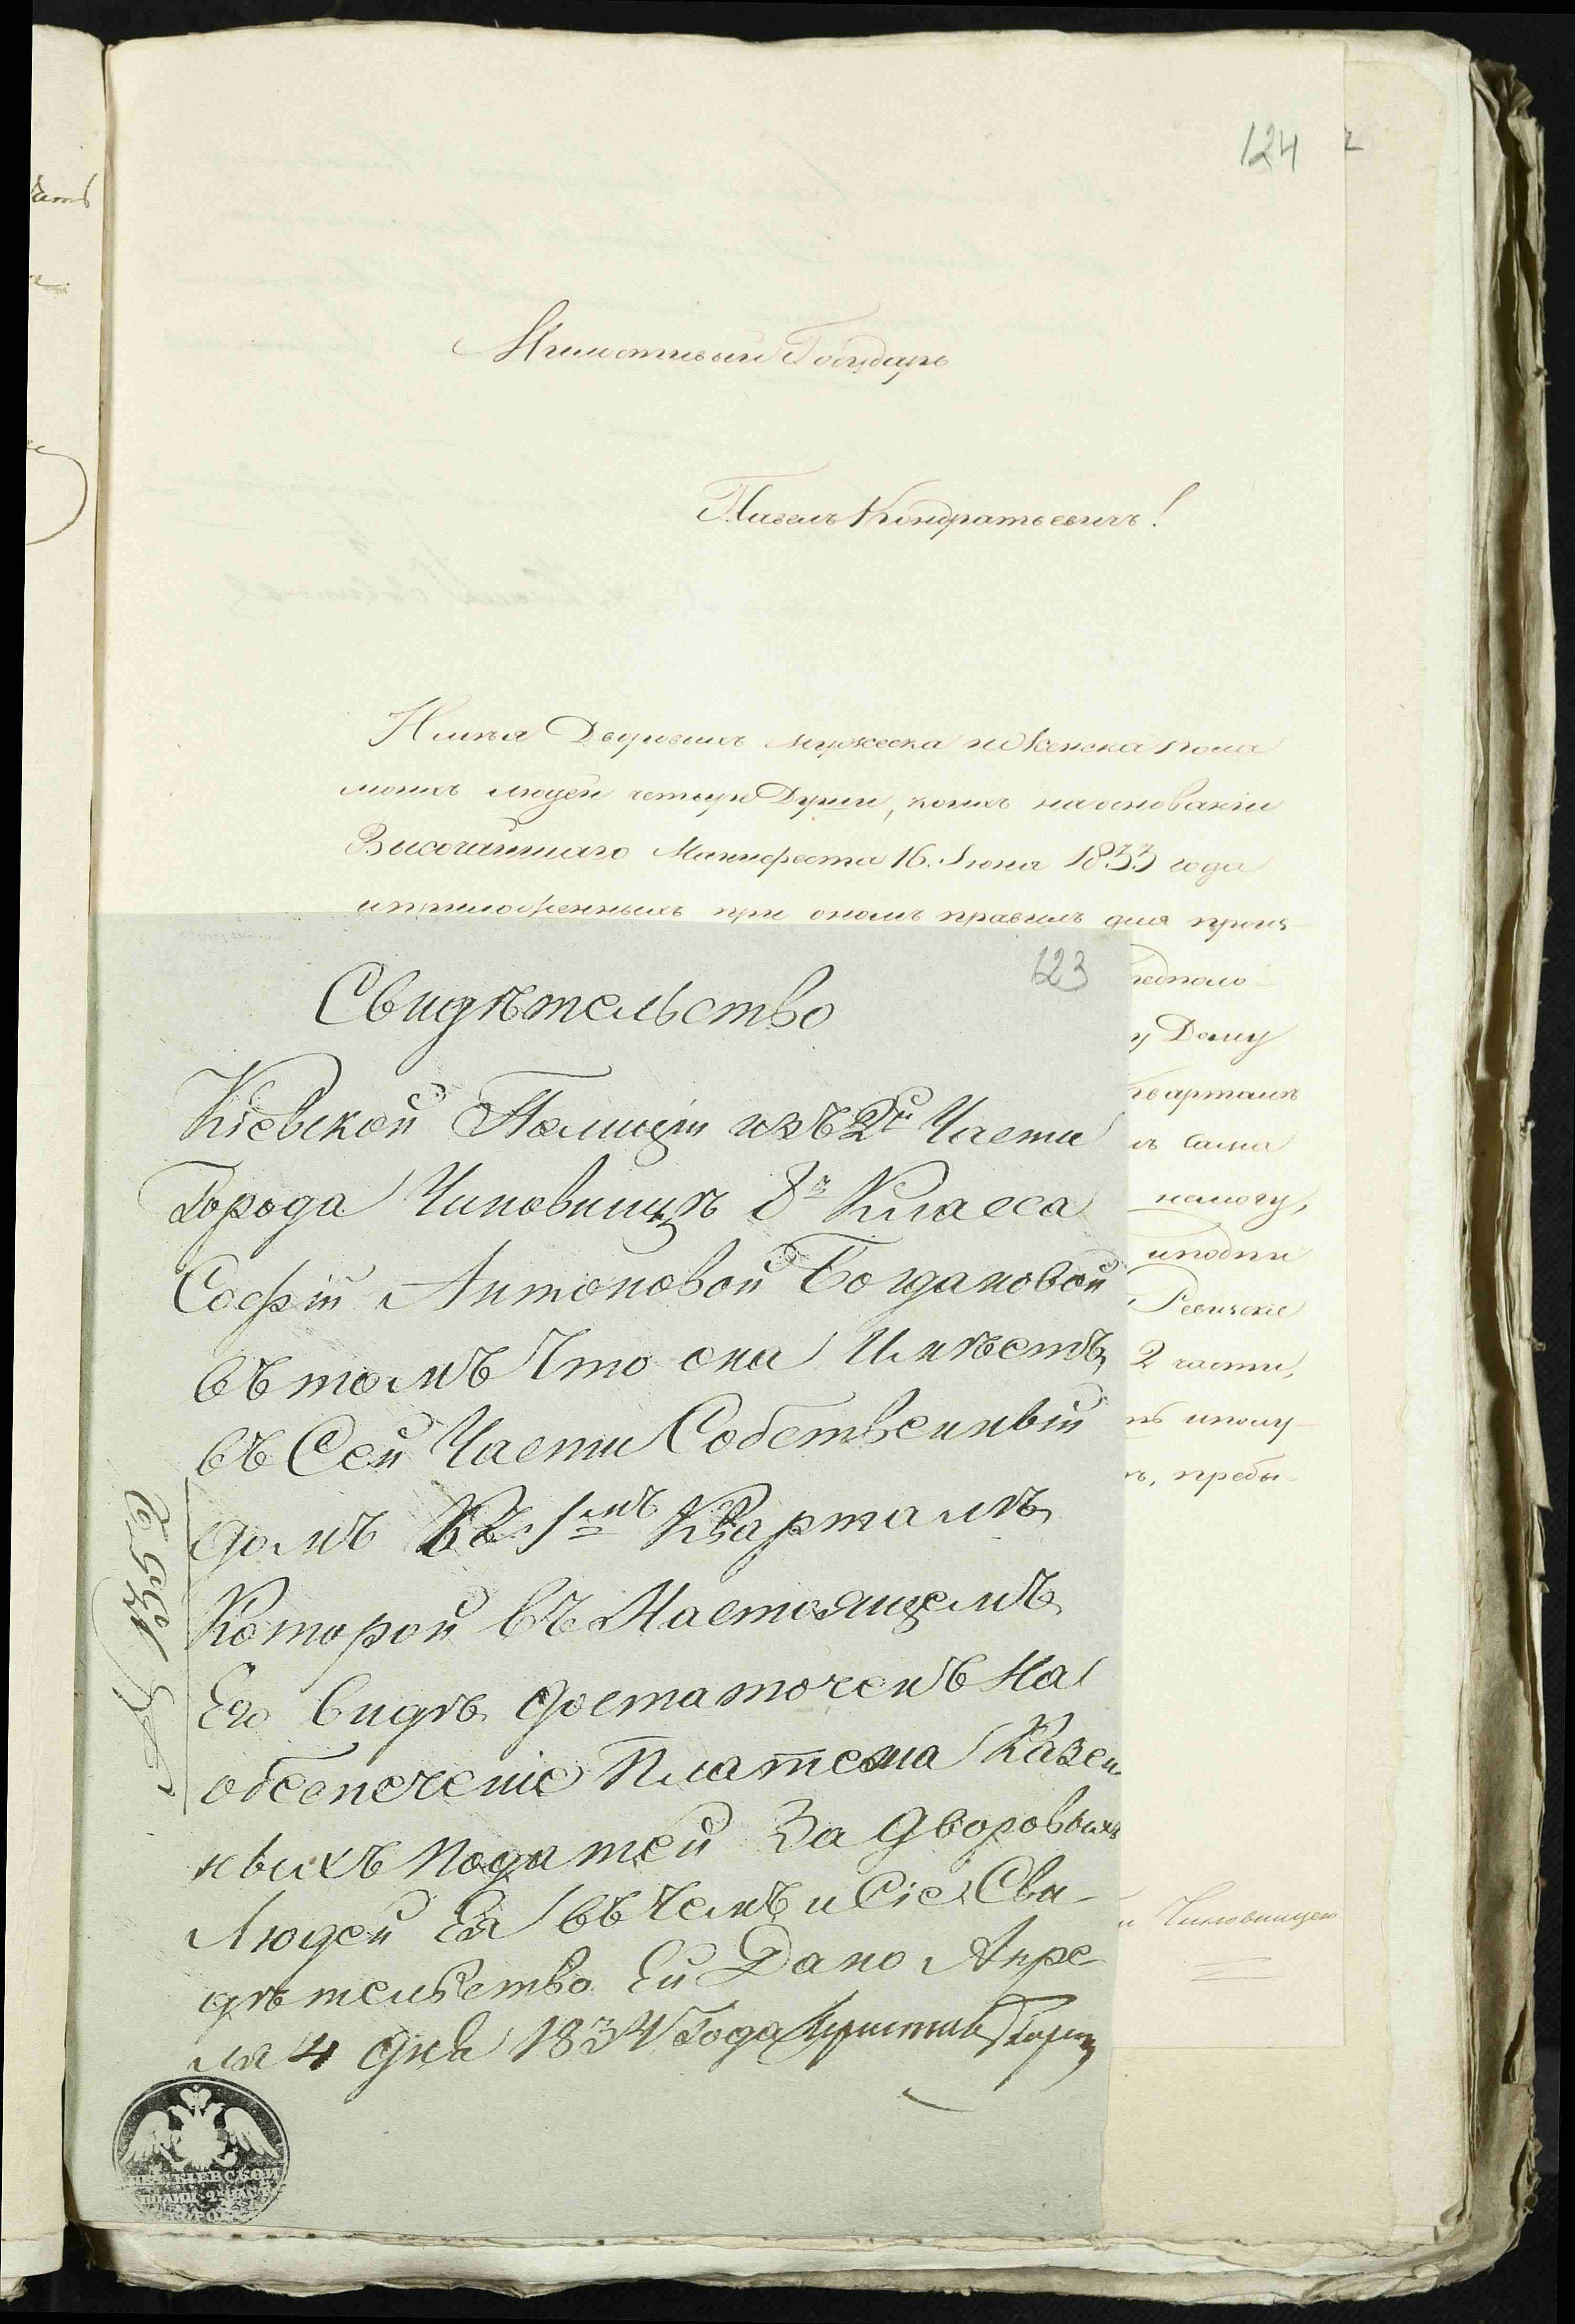 124
Милостивый Государь
Павелъ Кондратьевичъ!
Имѣя Дворовыхъ мужеска и женска пола
моихъ людей четыре Души, коихъ на основаніи
Высочайшаго Манифеста 16. Іюня 1833 года
и приложенныхъ при ономъ правилъ для произ-
редполо-
у Дому
Квартала
сама
немогу,
Ревизскіе
2 части,
пребы-
и Чиновницею
123
Свидѣтельство
Кіевской Полиціи изъ 2й Части
Города Чиновницѣ 8го Класса
Софіи Антоновой Богдановой
въ томъ Что она Имѣетъ
въ Сей Части Собственный
домъ въ 1мъ Кварталѣ
Которой въ Настоящемъ
Его Видѣ достаточенъ на
обеспеченіе Платежа Казен
ныхъ податей За дворовыхъ
Людей Ея въ чемъ и Сіе Сви-
дѣтельство Ей Дано Апре-
ля 4 дня 1834 Года Приставъ
КІЕВСКОЙ